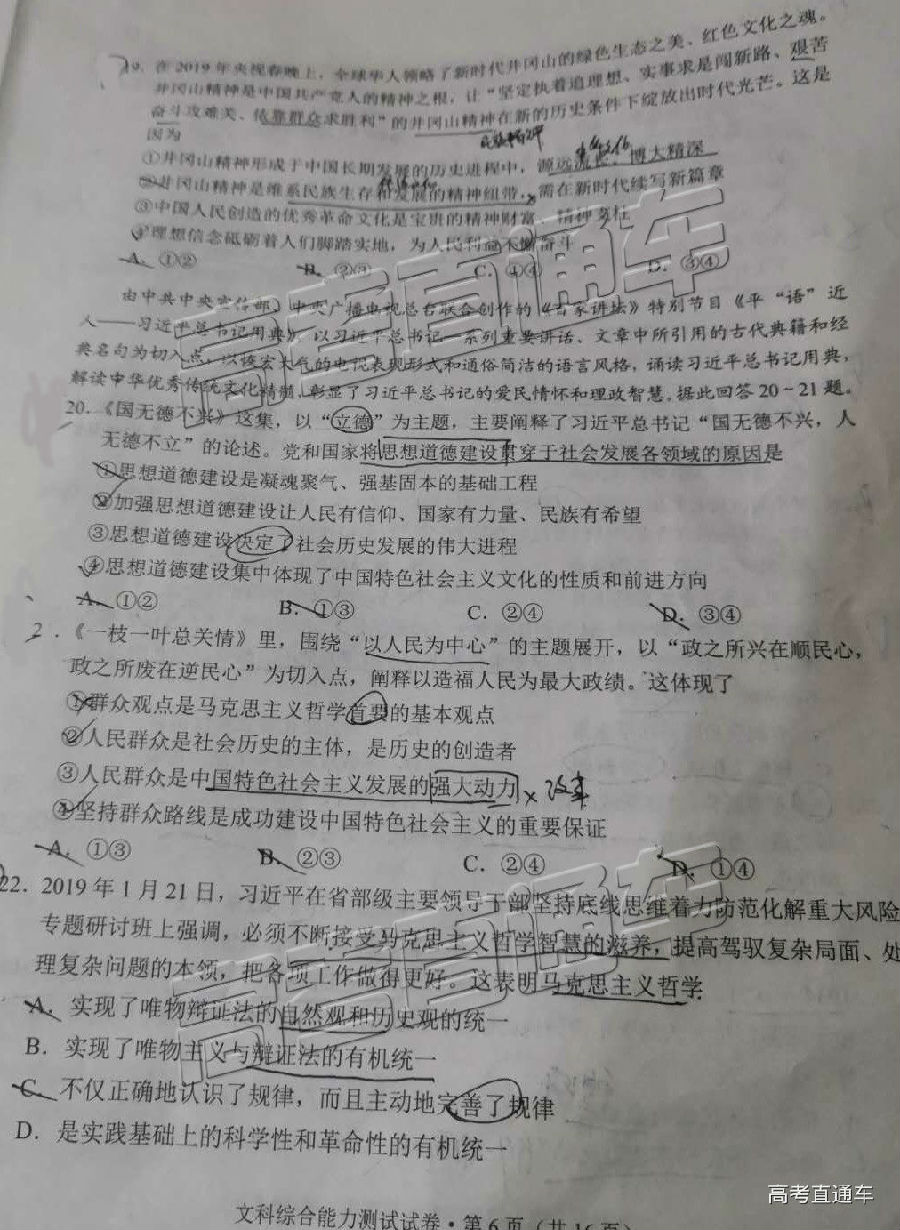 19. 在2019年央视春晚上，全球华人领略了新时代井冈山的绿色生态之美、红色文化之魂。
井冈山精神是中国共产党人的精神之根，让“坚定执着追理想、实事求是闯新路、艰苦
奋斗攻难关、依靠群众求胜利”的井冈山精神在新的历史条件下绽放出时代光芒。这是
因为
①井冈山精神形成于中国长期发展的历史进程中，源远流长、博大精深
②井冈山精神是维系民族生存和发展的精神纽带，需在新时代续写新篇章
③中国人民创造的优秀革命文化是宝贵的精神财富、精神支柱
④理想信念砥砺着人们脚踏实地，为人民利益不懈奋斗
A. ①② B. ②③ C. ①④ D. ③④
由中共中央宣传部、中央广播电视总台联合创作的《百家讲坛》特别节目《平“语”近
人——习近平总书记用典》，以习近平总书记一系列重要讲话、文章中所引用的古代典籍和经
典名句为切入点，以恢宏大气的电视表现形式和通俗简洁的语言风格，诵读习近平总书记用典，
解读中华优秀传统文化精髓，彰显了习近平总书记的爱民情怀和理政智慧。据此回答20－21题。
20.《国无德不兴》这集，以“立德”为主题，主要阐释了习近平总书记“国无德不兴，人
无德不立”的论述。党和国家将思想道德建设贯穿于社会发展各领域的原因是
①思想道德建设是凝魂聚气、强基固本的基础工程
②加强思想道德建设让人民有信仰、国家有力量、民族有希望
③思想道德建设决定了社会历史发展的伟大进程
④思想道德建设集中体现了中国特色社会主义文化的性质和前进方向
A. ①② B. ①③ C. ②④ D. ③④
2 .《一枝一叶总关情》里，围绕“以人民为中心”的主题展开，以“政之所兴在顺民心，
政之所废在逆民心”为切入点，阐释以造福人民为最大政绩。这体现了
①群众观点是马克思主义哲学首要的基本观点
②人民群众是社会历史的主体，是历史的创造者
③人民群众是中国特色社会主义发展的强大动力 × 改革
④坚持群众路线是成功建设中国特色社会主义的重要保证
A. ①③ B. ②③ C. ②④ D. ①④
22. 2019年1月21日，习近平在省部级主要领导干部坚持底线思维着力防范化解重大风险
专题研讨班上强调，必须不断接受马克思主义哲学智慧的滋养，提高驾驭复杂局面、处
理复杂问题的本领，把各项工作做得更好。这表明马克思主义哲学
A. 实现了唯物辩证法的自然观和历史观的统一
B. 实现了唯物主义与辩证法的有机统一
C. 不仅正确地认识了规律，而且主动地完善了规律
D. 是实践基础上的科学性和革命性的有机统一
文科综合能力测试试卷·第6页（共16页）
高考直通车
高考直通车
高考直通车